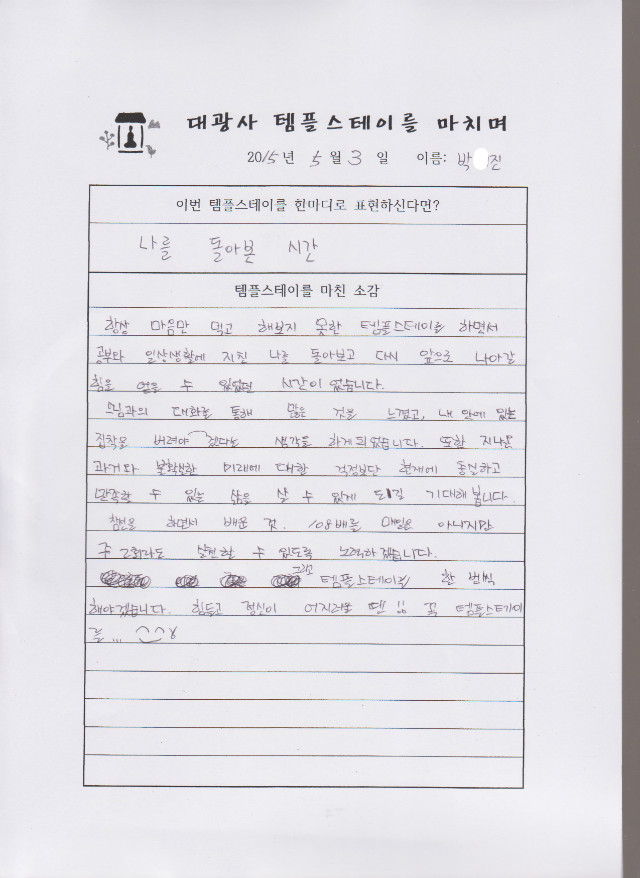 대광사 템플스테이를 마치며
2015년 5월 3일 이름: 박 진
이번 템플스테이를 한마디로 표현하신다면?
나를 돌아본 시간
템플스테이를 마친 소감
항상 마음만 먹고 해보지 못한 템플스테이를 하면서
공부와 일상생활에 지친 나를 돌아보고 다시 앞으로 나아갈
힘을 얻을 수 있었던 시간이었습니다.
스님과의 대화를 통해 많은 것을 느꼈고, 내 안에 있는
집착을 버려야겠다는 생각을 하게 되었습니다. 또한 지나온
과거와 불확실한 미래에 대한 걱정보단 현재에 충실하고
만족할 수 있는 삶을 살 수 있게 되길 기대해 봅니다.
참선을 하면서 배운 것. 108배를 매일은 아니지만
주 2회라도 실천할 수 있도록 노력하겠습니다.
그리고 템플스테이를 한 번씩
해야겠습니다. 힘들고 정신이 어지러울 땐!! 꼭 템플스테이
를...